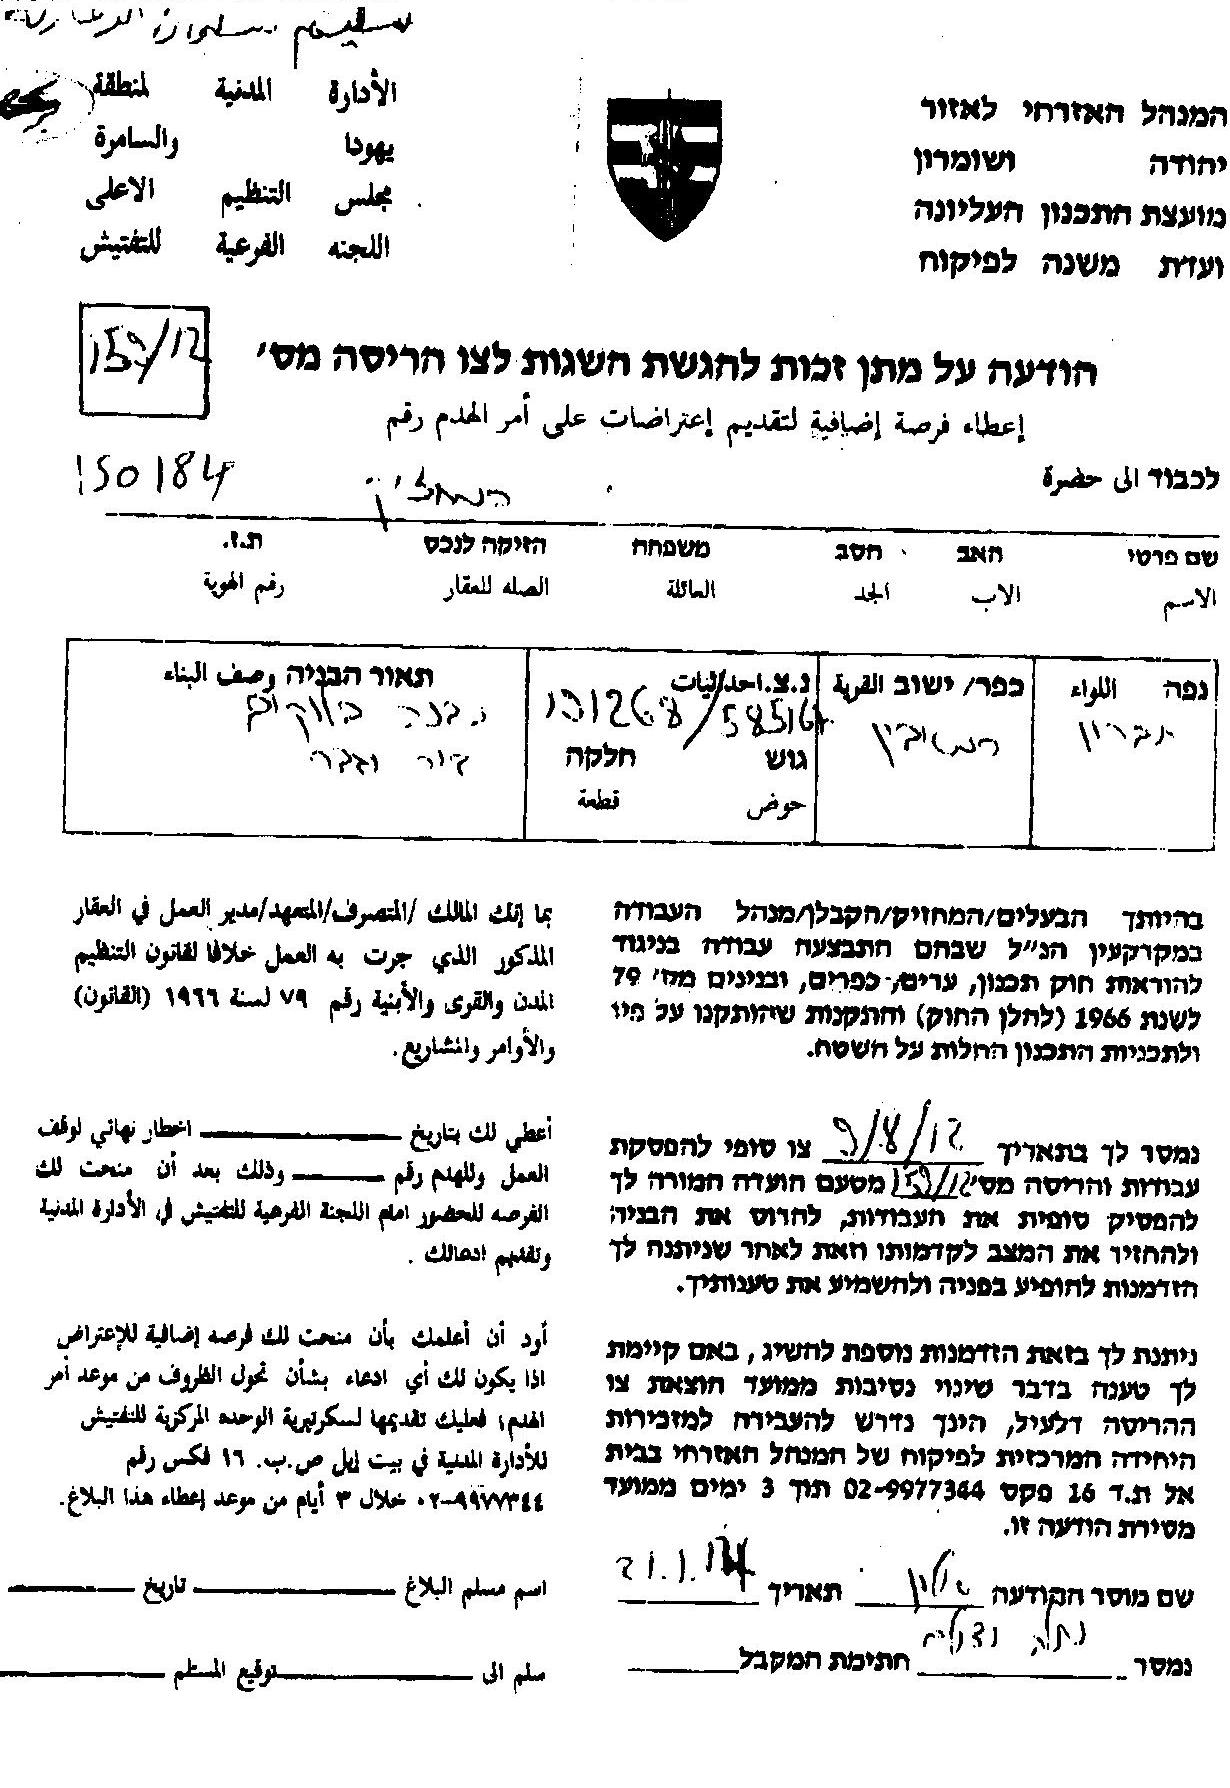 המנהל האזרחי לאזור
יהודה ושומרון
מועצת התכנון העליונה
ועדת משנה לפיקוח
الأدارة المدنية لمنطقة
يهودا والسامرة
مجلس التنظيم الاعلى
اللجنه الفرعية للتفتيش
הודעה על מתן זכות להגשת השגות לצו הריסה מס׳
159/12
إعطاء فرصة إضافية لتقديم إعتراضات على أمر الهدم رقم
לכבוד الى حضرة
המחזיק
150184
שם פרטי האב הסב משפחה הזיקה לנכס ת.ז.
الاسم الاب الجد العائلة الصله للعقار رقم الهوية
נפה اللواء
חברון
כפר/ ישוב القرية
נ.צ. احداثيات
גוש חלקה
حوض قطعة
תאור הבניה وصف البناء
מבנה בלוקים
בהיותך הבעלים/המחזיק/הקבלן/מנהל העבודה
במקרקעין הנ״ל שבהם התבצעה עבודה בניגוד
להוראות חוק תכנון, ערים, כפרים, ובנינים מס׳ 79
לשנת 1966 (להלן החוק) והתקנות שהותקנו על פיו
ולתכניות התכנון החלות על השטח.
נמסר לך בתאריך 9/8/12 צו סופי להפסקת
עבודות והריסה מס׳ 159/12 מטעם הועדה המורה לך
להפסיק סופית את העבודות, להרוס את הבניה
ולהחזיר את המצב לקדמותו וזאת לאחר שניתנה לך
הזדמנות להופיע בפניה ולהשמיע את טענותיך.
ניתנת לך בזאת הזדמנות נוספת להשיג, באם קיימת
לך טענה בדבר שינוי נסיבות ממועד הוצאת צו
ההריסה דלעיל, הינך נדרש להעבירה למזכירות
היחידה המרכזית לפיקוח של המנהל האזרחי בבית
אל ת.ד 16 פקס 02-9977344 תוך 3 ימים ממועד
מסירת הודעה זו.
שם מוסר ההודעה תאריך 21.1.14
נמסר חתימת המקבל
بما إنك المالك /المتصرف/المتعهد/مدير العمل في العقار
المذكور الذي جرت به العمل خلافا لقانون التنظيم
المدن والقرى والأبنية رقم ٧٩ لسنة ١٩٦٦ (القانون)
والأوامر والمشاريع.
أعطي لك بتاريخ اخطار نهائي لوقف
العمل وللهدم رقم وذلك بعد أن منحت لك
الفرصه للحضور امام اللجنة الفرعية للتفتيش في الأدارة المدنية
وتقديم ادعائك .
أود أن أعلمك بأن منحت لك فرصه إضافية للإعتراض
اذا يكون لك أي ادعاء بشأن تحول الظروف من موعد أمر
الهدم، فعليك تقديمها لسكرتيرية الوحده المركزية للتفتيش
للأدارة المدنية في بيت إيل ص.ب. ١٦ فكس رقم
٠٢-٩٩٧٧٣٤٤ خلال ٣ أيام من موعد إعطاء هذا البلاغ.
اسم مسلم البلاغ تاريخ
سلم الى توقيع المستلم